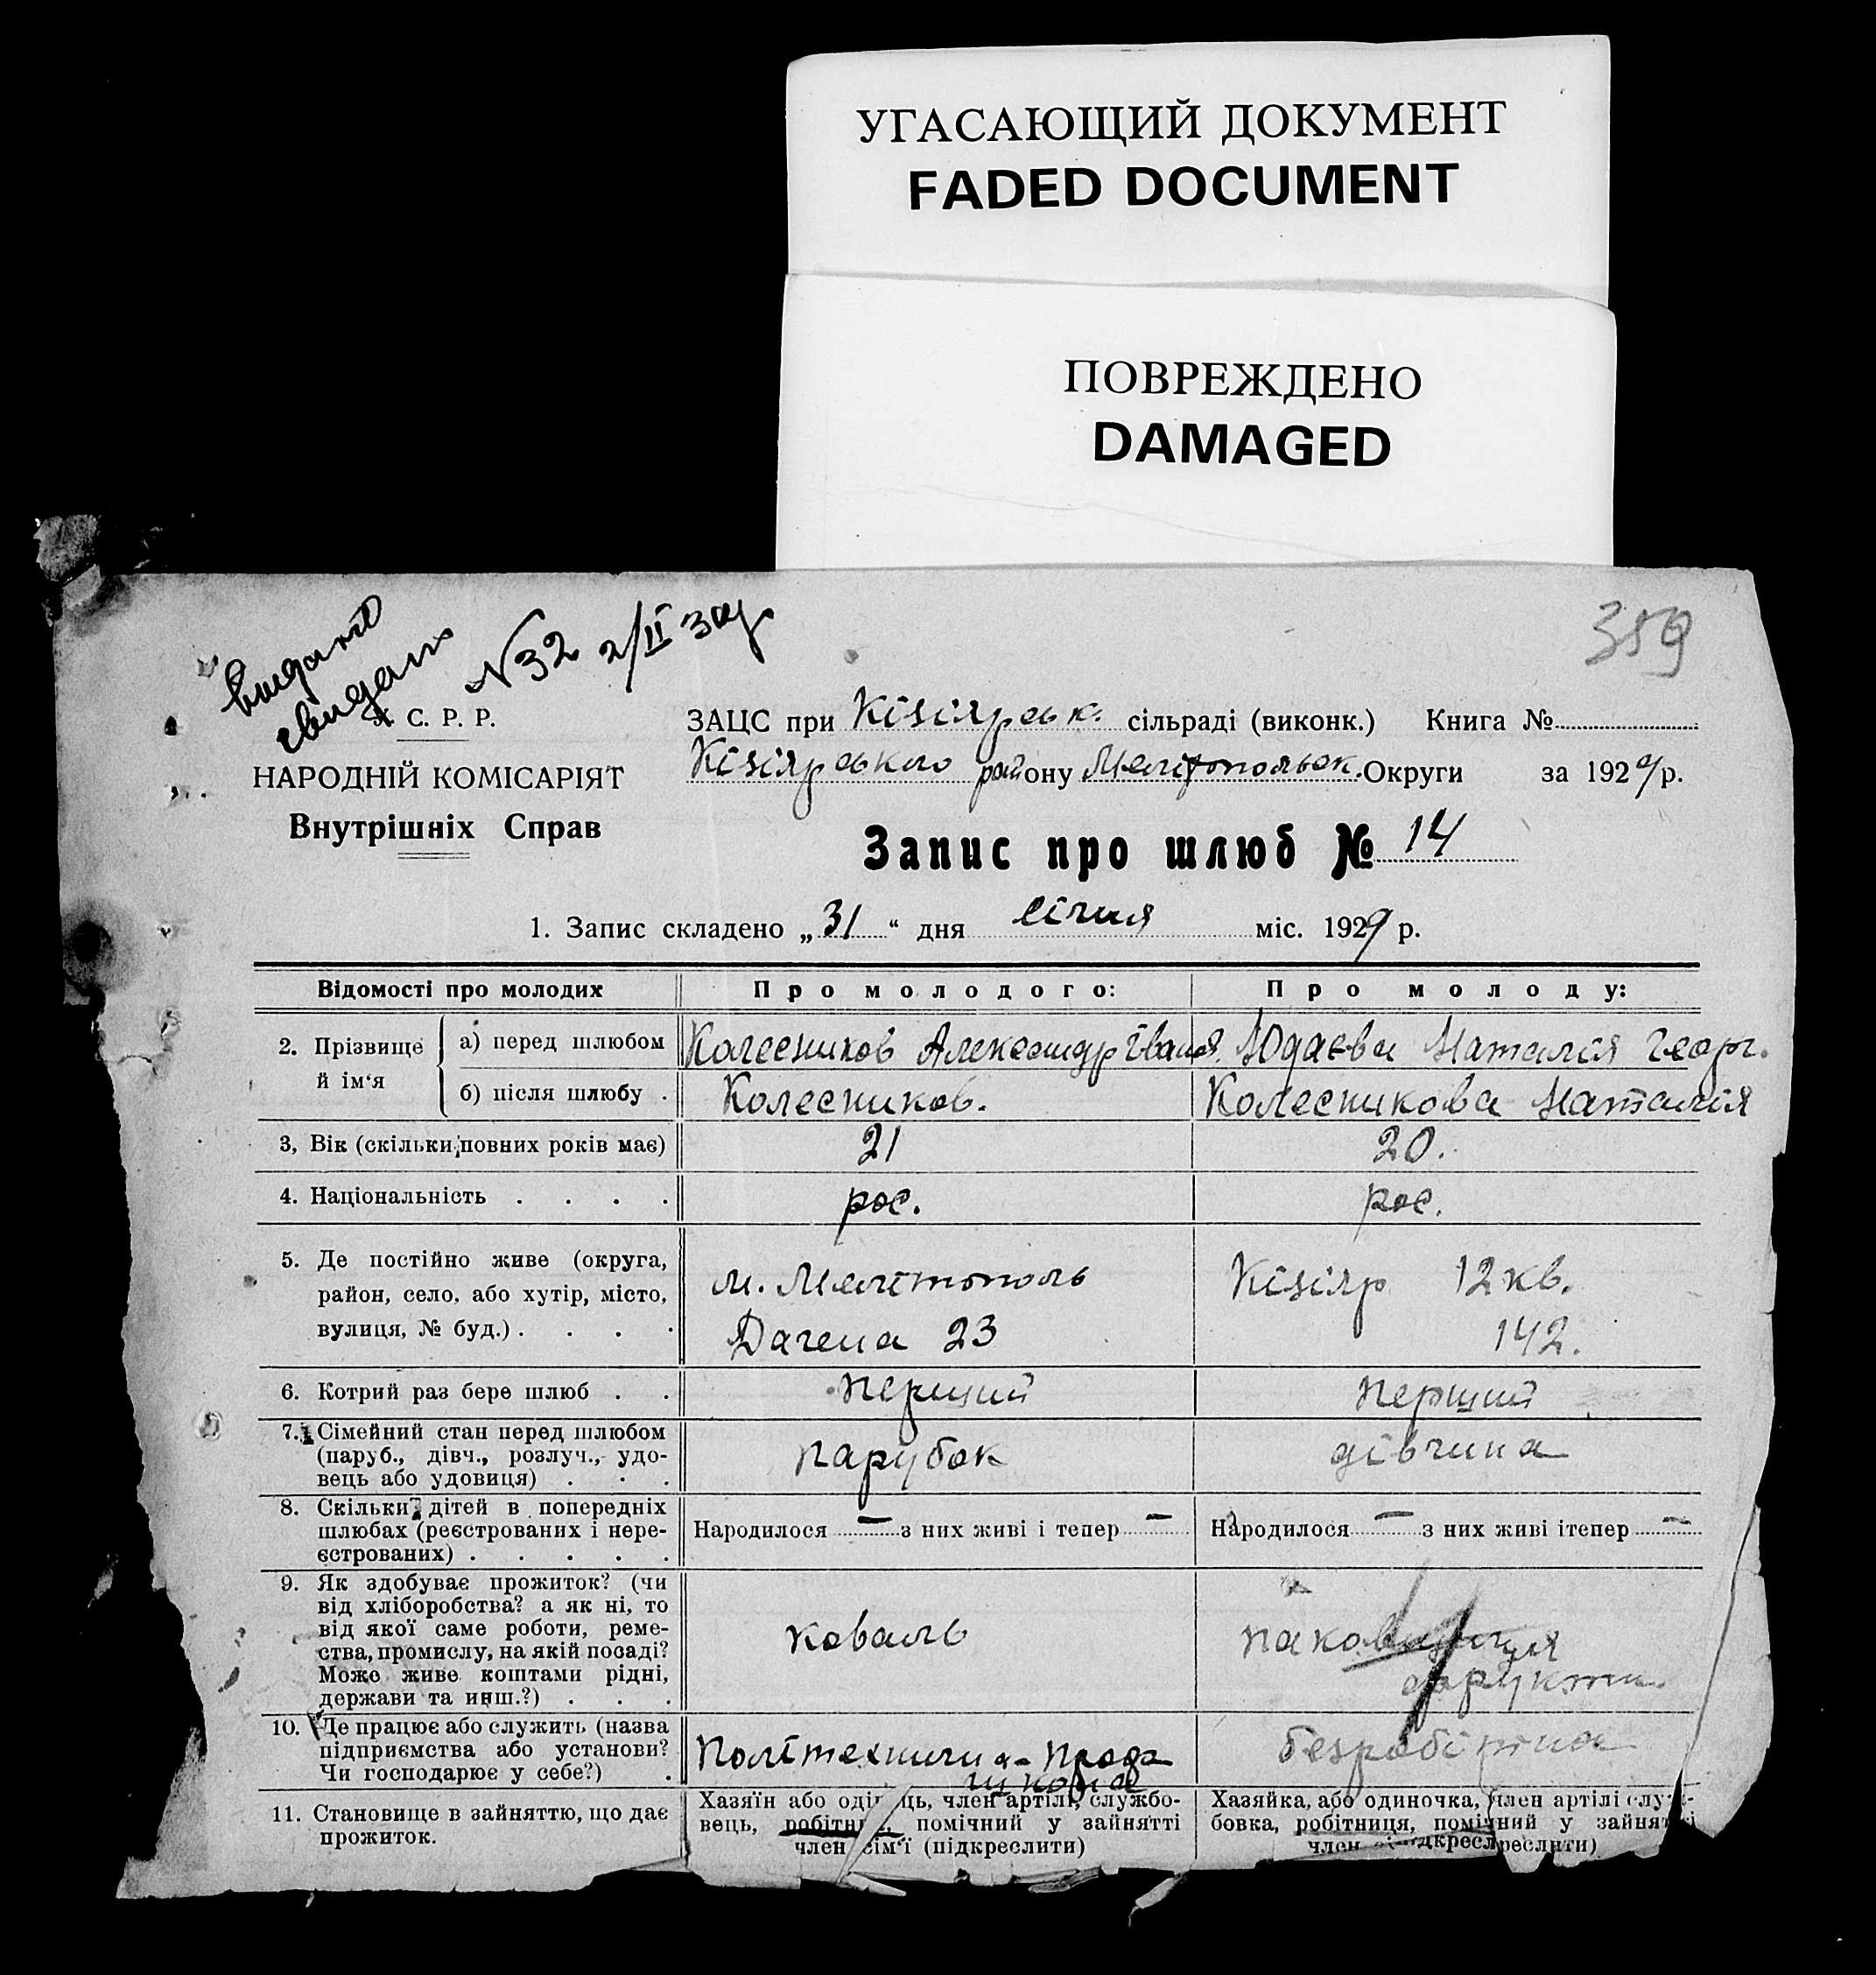 УГАСАЮЩИЙ ДОКУМЕНТ
FADED DOCUMENT
ПОВРЕЖДЕНО
DAMAGED
359
видано
свидан
N32 2/II
С. Р. Р.
НАРОДНІЙ КОМІСАРІЯТ
Внутрішніх Справ
ЗАЦС при Кізіярськ. сільраді (виконк.) Книга №
Кізіярського району Мелітопольськ. Округи за 1929 р.
Запис про шлюб № 14
1. Запис складено „31“ дня січня міс. 1929 р.
Відомості про молодих
Про молодого:
Про молоду:
2. Прізвище й ім‘я
а) перед шлюбом
Колесников Александр Іван.
Юдаєва Наталія Георг.
б) після шлюбу .
Колесников.
Колесникова Наталія
3, Вік (скільки повних років має)
21
20.
4. Національність . . . .
рос.
рос.
5. Де постійно живе (округа,
район, село, або хутір, місто,
вулиця, № буд.) . . . .
м. Мелітополь
23
Кізіяр 12 кв.
142.
6. Котрий раз бере шлюб . .
перший
перший
7. Сімейний стан перед шлюбом
(паруб., дівч., розлуч., удо-
вець або удовиця) . . .
парубок
дівчина
8. Скільки дітей в попередніх
шлюбах (реєстрованих і нере-
єстрованих) . . . . .
Народилося — з них живі і тепер —
Народилося — з них живі ітепер —
9. Як здобуває прожиток? (чи
від хліборобства? а як ні, то
від якої саме роботи, реме-
ства, промислу, на якій посаді?
Може живе коштами рідні,
держави та инш.?) . . .
коваль
фрукти
10. Де працює або служить (назва
підприємства або установи?
Чи господарює у себе?) .
Политехнична Проф
школа
безробітна
11. Становище в зайняттю, що дає
прожиток.
Хазяїн або один ць, член артілі, службо-
вець, робітни , помічний у зайнятті
член сім‘ї (підкреслити)
Хазяйка, або одиночка, член артілі служ-
бовка, робітниця, помічний у зайнят і
член